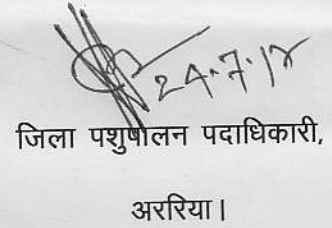 24.7.18
जिला पशुपालन पदाधिकारी,
अररिया।